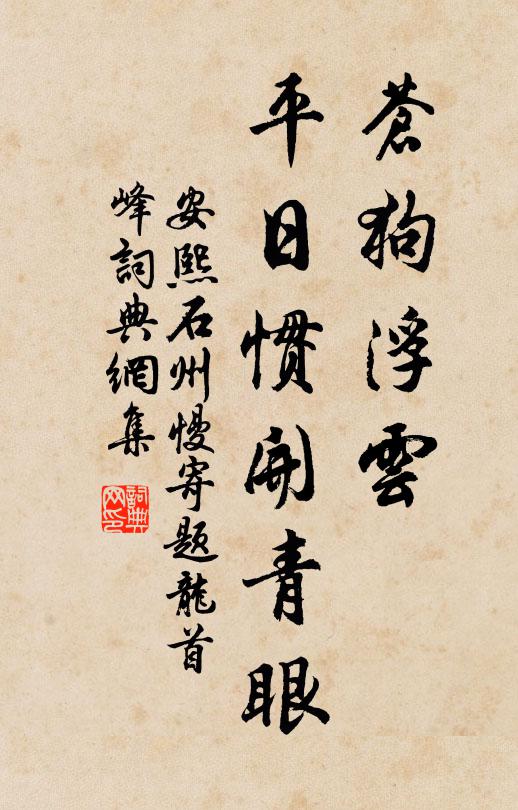 蒼狗浮雲
平日慣開青眼
安熙石州慢寄題龍首
峰詞典網集
詞典
网印